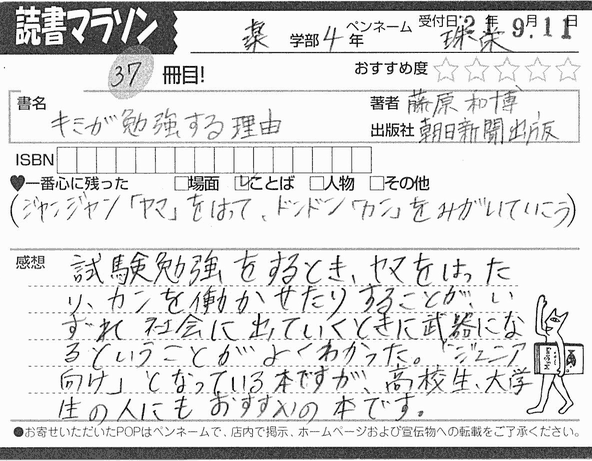 読書マラソン
薬 学部 4 年 ペンネーム 珠栄 受付日:21年9月11日
37 冊目! おすすめ度 ☆☆☆☆☆
書名 キミが勉強する理由
著者 藤原和博
出版社 朝日新聞出版
ISBN
♥一番心に残った □場面 ☑ことば □人物 □その他
(ジャンジャン「ヤマ」をはって、ドンドン「カン」をみがいていこう)
感想 試験勉強をするとき、ヤマをはった
り、カンを働かせたりすることが、い
ずれ社会に出ていくときに武器にな
るということがよくわかった。「ジュニア
向け」となっている本ですが、高校生、大学
生の人にもおすすめの本です。
●お寄せいただいたPOPはペンネームで、店内で掲示、ホームページおよび宣伝物への転載をご了承ください。